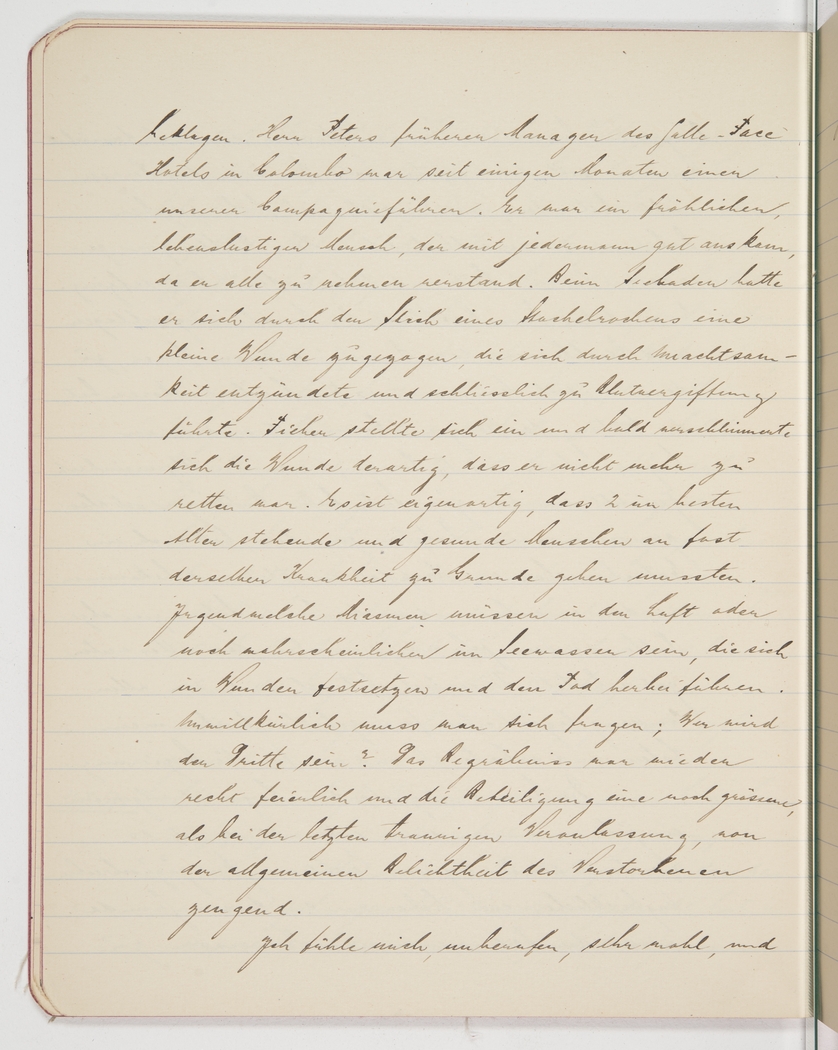 beklagen. Herr Peters früherer Manager des Galle-Face
Hotels in Colombo war seit einigen Monaten einer
unserer Compagnieführer. Er war ein fröhlicher,
lebenslustiger Mensch, der mit jedermann gut auskam,
da er alle zu nehmen verstand. Beim Seebaden hatte
er sich durch den Stich eines Stachelrochens eine
kleine Wunde zugezogen, die sich durch Unachtsam-
keit entzündete und schliesslich zu Blutvergiftung
führte. Fieber stellte sich ein und bald verschlimmerte
sich die Wunde derartig, dass er nicht mehr zu
retten war. Es ist eigenartig, dass 2 im besten
Alter stehende und gesunde Menschen an fast
derselben Krankheit zu Grunde gehen mussten.
Irgendwelche Miasmen müssen in der Luft oder
noch wahrscheinlicher im Seewasser sein, die sich
in Wunden festsetzen und den Tod herbeiführen.
Unwillkürlich muss man sich fragen; Wer wird
der Dritte sein? Das Begräbniss war wieder
recht feierlich und die Beteiligung eine noch grössere,
als bei der letzten traurigen Veranlassung, von
der allgemeinen Beliebtheit des Verstorbenen
zeugend.
Ich fühle mich, unberufen, sehr wohl, und